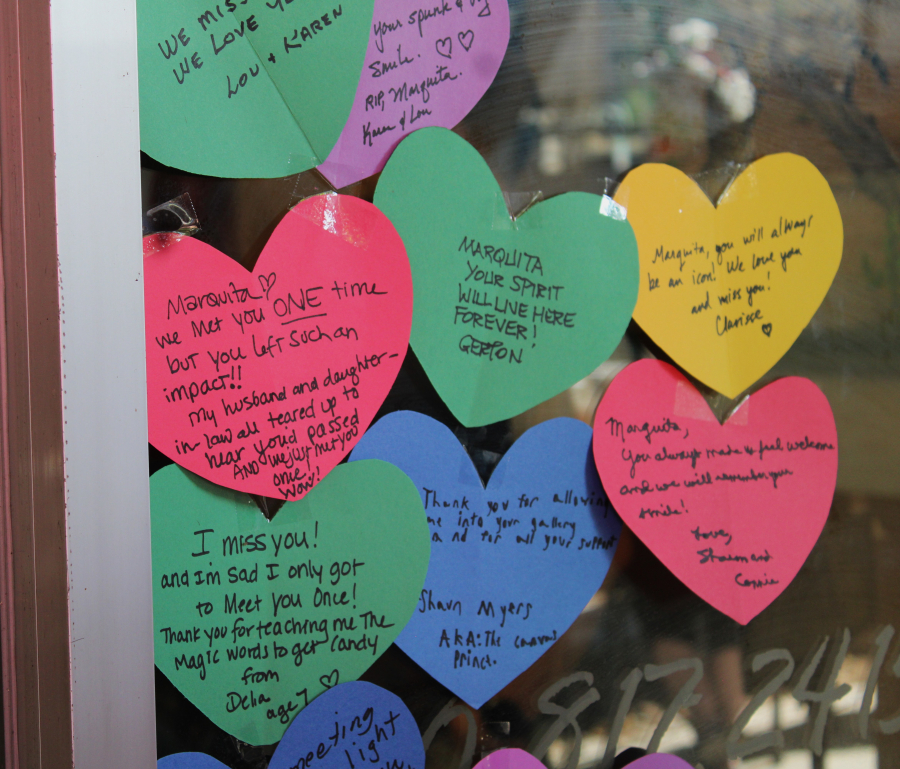 WE MISS
WE LOVE
LOU + KAREN
your spunk &
smile. ♡♡
RIP, Marquita.
Karen & Lou
MARQUITA
YOUR SPIRIT
WILL LIVE HERE
FOREVER!
GERTON
Marquita, you will always
be an icon! We love you
and miss you!
Clarisse
♡
Marquita ♡
we Met you ONE time
but you left such an
impact!!
My husband and daughter-
in-law all teared up to
hear you'd passed
AND we just met you
once!
Wow!
Marquita,
You always made us feel welcome
and we will remember your
smile!
Love,
Sharon and
Connie
Thank you for allowing
me into your gallery
and for all your support
Shawn Myers
AKA: The
Prince.
I MISS YOU!
and I'm sad I only got
to Meet you Once!
Thank you for teaching me The
Magic words to get candy
from
Delia
age 7 ♡
meeting
light
0 817 241